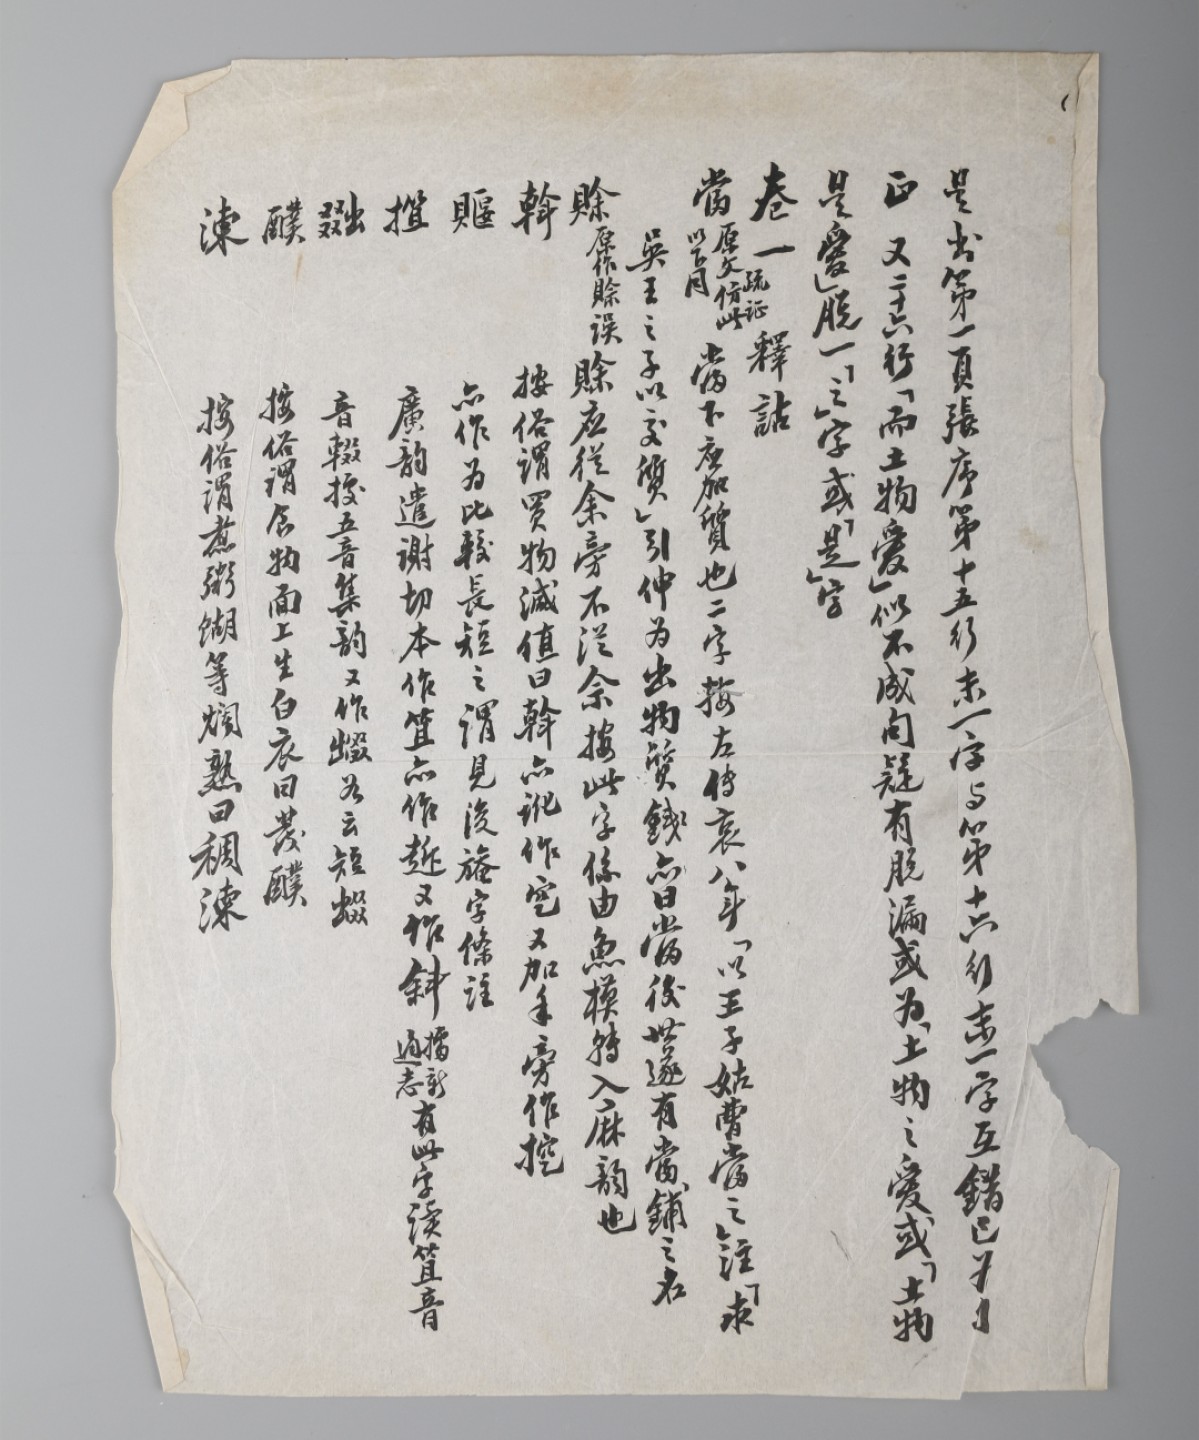 是書第一頁張序第十五行末一字与第十六行末一字互錯已為
正 又二十六行「而土物爱」似不成句疑有脱漏或为「土物之爱或「土物
是爱」脱一「之」字或「是」字
卷一 疏证 釋詁
當 原文仿此 以下同 當下应加質也二字按左傳哀八年「以王子姑曹當之」註「求
吳王之子以交質」引伸为出物質錢亦曰當後世遂有當鋪之名
賖 原作賒誤 賖应從余旁不從佘按此字係由魚模轉入麻韵也
斡 按俗謂買物減值曰斡亦訛作空又加手旁作挖
躽 亦作为比較長短之謂見後字條註
揎 廣韵遣謝切本作笡亦作趄又作斜 通志 有此字读笡音
音輟按五音集韵又作云短
醭 按俗謂食物面上生白衣曰發醭
涷 按俗謂煮粥餬等爛熟曰稠涷